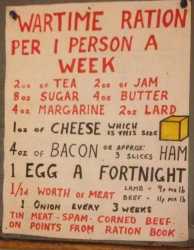 WARTIME RATION
PER 1 PERSON A
WEEK
2oz of TEA 2oz of JAM
8oz SUGAR 4oz BUTTER
4oz MARGARINE 2oz LARD
1oz of CHEESE WHICH IS THIS SIZE
4oz of BACON OR APPROX: 3 SLICES HAM
1 EGG A FORTNIGHT
WORTH OF MEAT LAMB - BEEF -
1 ONION EVERY 3 WEEKS
TIN MEAT - SPAM - CORNED BEEF.
ON POINTS FROM RATION BOOK